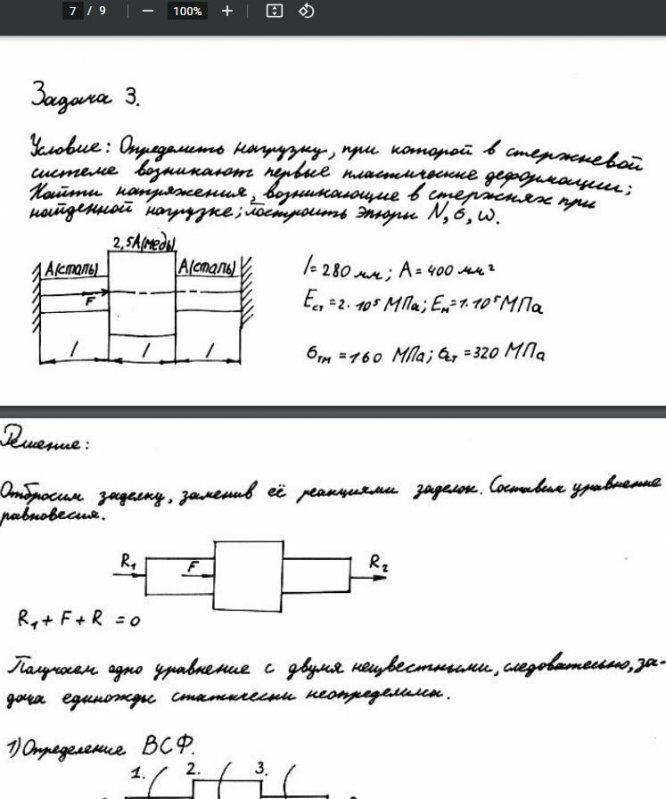 7 / 9 — 100% +
Задача 3.
Условие: Определить нагрузку, при которой в стержневой
системе возникают первые пластические деформации;
Найти напряжения, возникающие в стержнях при
найденной нагрузке; Построить эпюры N, σ, ω.
2,5A(медь)
A(сталь) A(сталь)
F
l l l
l = 280 мм; A = 400 мм²
Eст = 2·10⁵ МПа; Eм = 1·10⁵ МПа
σтм = 160 МПа; σст = 320 МПа
Решение:
Отбросим заделку, заменив её реакциями заделок. Составим уравнение
равновесия.
R₁ F R₂
R₁ + F + R = 0
Получаем одно уравнение с двумя неизвестными, следовательно, за-
дача единожды статически неопределима.
1) Определение ВСФ.
1. 2. 3.